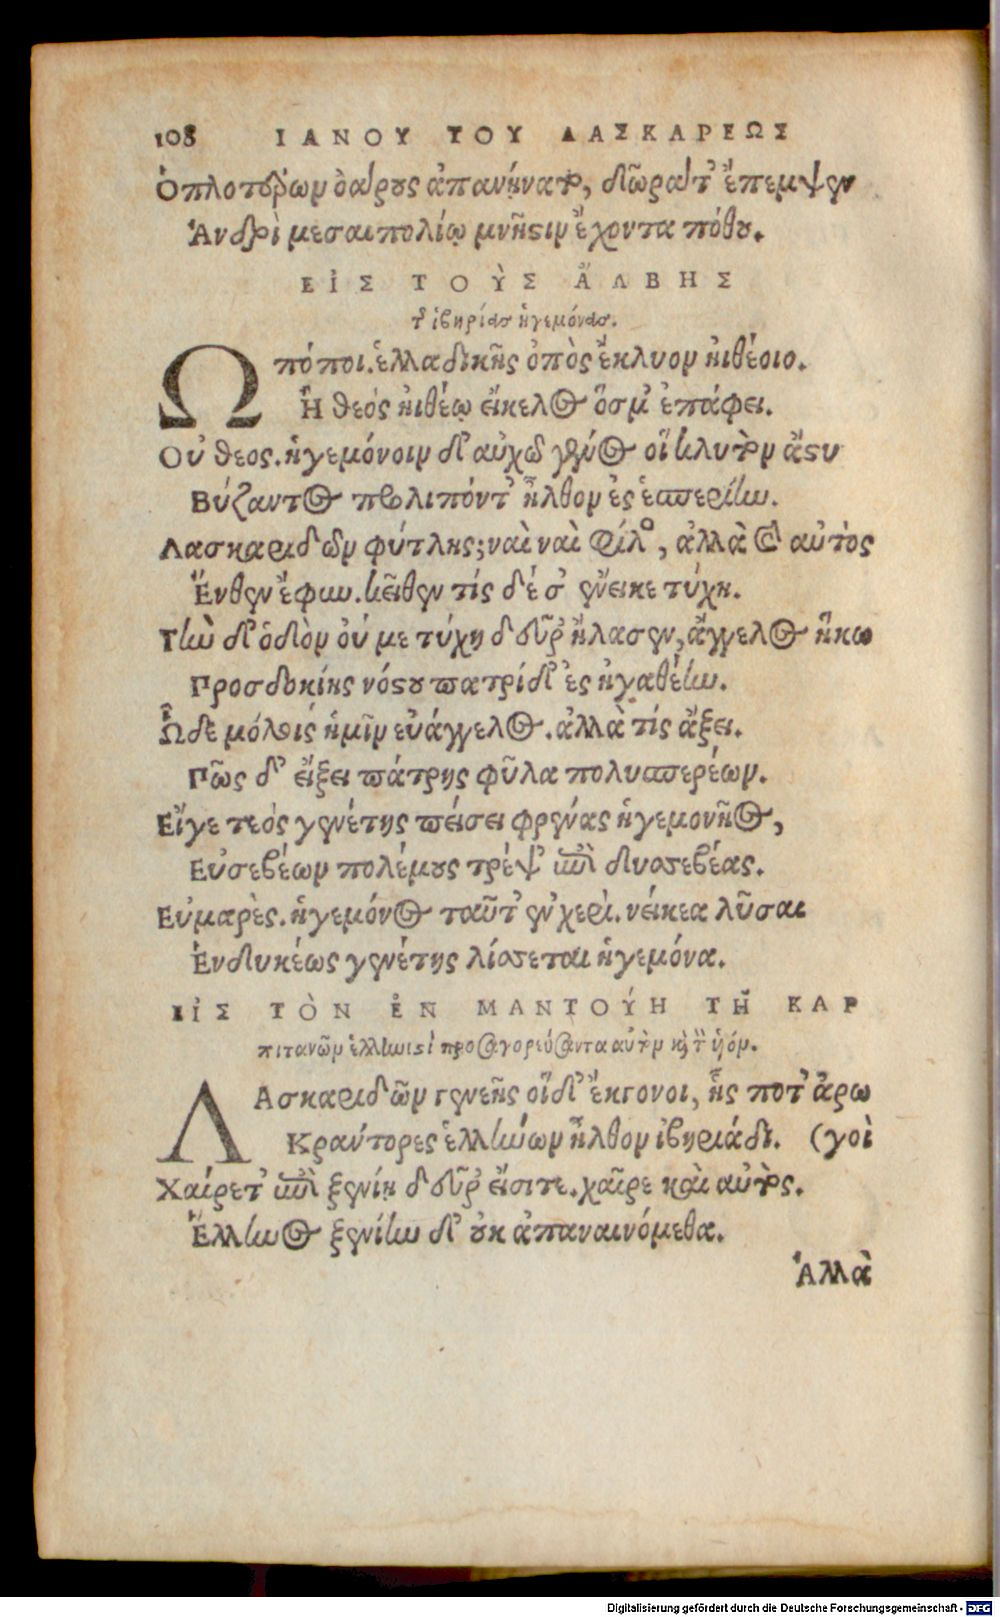 108 ΙΑΝΟΥ ΤΟΥ ΛΑΣΚΑΡΕΩΣ
Ὁπλοτέρων ὀάρους ἀπανήνατο, δῶρα τ' ἔπεμψεν
Ἀνδρὶ μεσαιπολίῳ μνῆστιν ἔχοντα πόθου.
ΕἸΣ ΤΟῪΣ ἌΛΒΗΣ
τῆς ἰβηρίας ἡγεμόνας.
Ὢ πόποι. ἑλλαδικῆς ὀπὸς ἔκλυον ἠιθέοιο.
Ἢ θεός ἠιθέῳ εἴκελος ὅς μ' ἐπάφει.
Οὐ θεος. ἡγεμόνοιν δ' αὐχῶ γένος οἵ κλυτὸν ἄστυ
Βύζαντος προλιπόντ' ἦλθον ἐς ἑσπερίην.
Λασκαριδῶν φύτλης; ναὶ ναὶ φίλος, ἀλλὰ σὺ αὐτὸς
Ἔνθεν ἔφυν. κεῖθεν τίς δέ σ' ἔνεικε τύχη.
Τὴν δ' ὁδὸν οὔ με τύχη δεῦρ' ἤλασεν, ἄγγελος ἥκω
Προσδοκίης νόστου πατρίδ' ἐς ἠγαθέην.
Ὧδε μόλοις ἡμῖν εὐάγγελος. ἀλλὰ τίς ἄξει.
Πῶς δ' εἴξει πάτρης φῦλα πολυσπερέων.
Εἴγε τεός γενέτης πείσει φρένας ἡγεμονῆος,
Εὐσεβέων πολέμους τρέψ' ἐπὶ δυσσεβέας.
Εὐμαρὲς. ἡγεμόνος ταῦτ' ἐν χερὶ. νείκεα λῦσαι
Ἐνδυκέως γενέτης λίσσεται ἡγεμόνα.
ΕἸΣ ΤῸΝ ἘΝ ΜΑΝΤΟΎΗ ΤΗ͂ ΚΑΡ
πιτανῶν ἑλληνιστὶ προσαγορεύσαντα αὐτὸν καὶ τὸν ὑόν.
ΛΑσκαριδῶν γενεῆς οἵδ' ἔκγονοι, ἧς ποτ' ἀρω
Κραντορες ἑλλήνων ἦλθον ἰβηριάδι. (γοὶ
Χαίρετ' ἐπὶ ξενίῃ δεῦρ' εἴσιτε. χαῖρε καὶ αὐτὸς.
Ἕλληνος ξενίην δ' οὐκ ἀπαναινόμεθα.
Ἀλλὰ
Digitalisierung gefördert durch die Deutsche Forschungsgemeinschaft - DFG